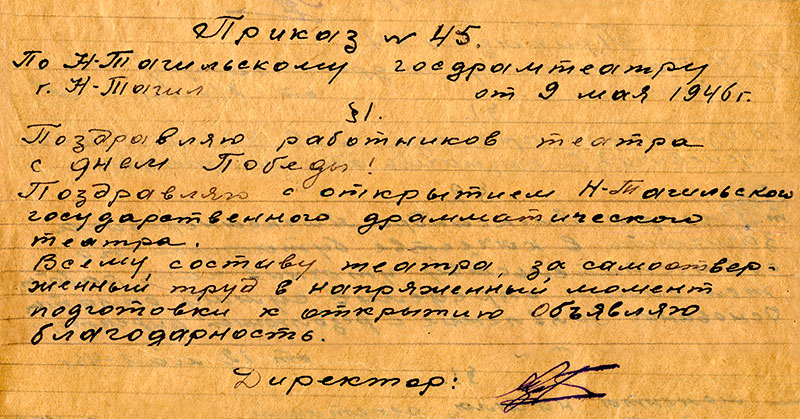 Приказ № 45.
По Н-Тагильскому госдрамтеатру
г. Н-Тагил от 9 мая 1946 г.
§1.
Поздравляю работников театра
с днем Победы!
Поздравляю с открытием Н-Тагильского
государственного драмматического
театра.
Всему составу театра, за самоотвер-
женный труд в напряженный момент
подготовки к открытию Объявляю
благодарность.
Директор: